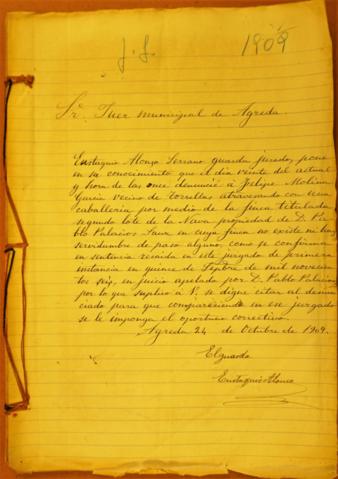 J. F. 1909
Sr. Juez municipal de Agreda.
Eustaquio Alonso Serrano guarda jurado, pone
en su conocimiento que el dia veinte del actual
y hora de las once denuncié á Felipe Molina
Garcia vecino de Torrellas atravesando con una
caballeria por medio de la finca titulada
segundo lote de la Nava propiedad de D. Pa-
blo Palacios Sanz en cuya finca no existe ni hay
servidumbre de paso alguno, como se confirma
en sentencia recaida en este juzgado de primera
instancia en quince de Sepbre de mil novecien
tos seis, en juicio apelado por D. Pablo Palacios
por lo que suplico á V. se digne citar al denun
ciado para que compareciendo en ese juzgado
se le imponga el oportuno correctivo.
Agreda 24 de Octubre de 1909.
El guarda
Eustaquio Alonso